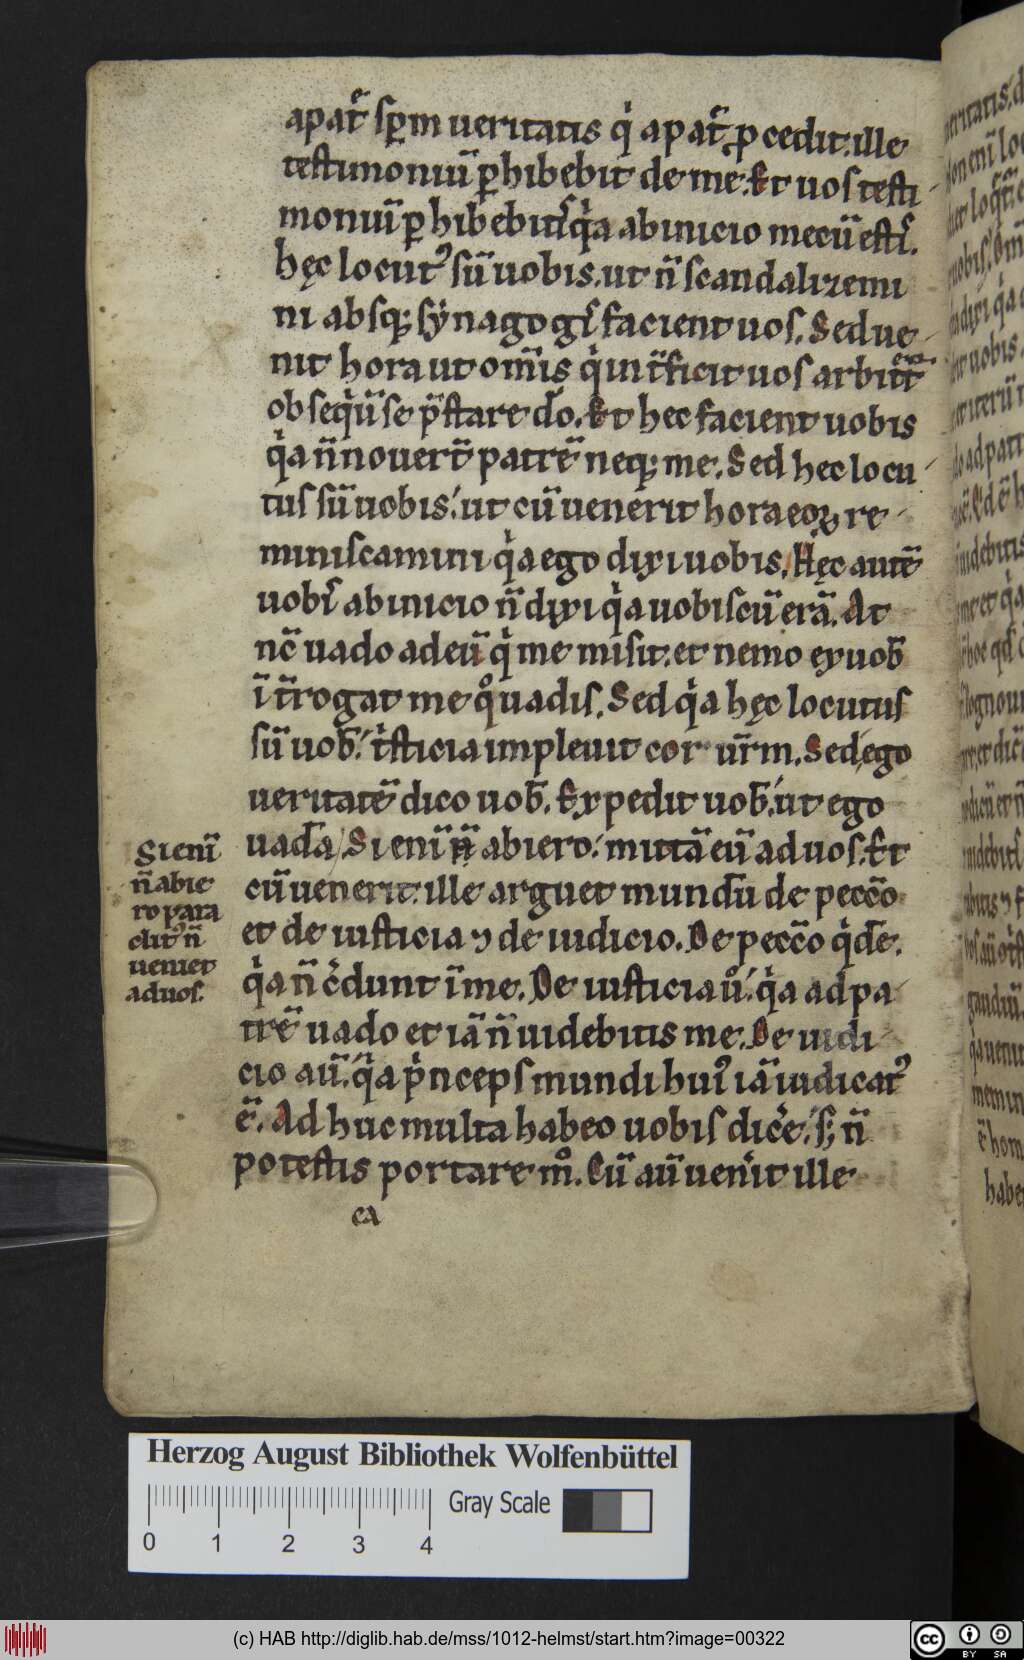 apat̄ sp̄m ueritatis q̇ apat̄ ꝓcedit. ille
testimoniū ꝑhibebit de me. Et uos testi
moniū ꝑhibebitis q̇a abinicio mecū estis.
hęc locut᷒ sū uobis. ut n̄ scandalizemi
ni absq; synagogis facient uos. Sed ue
nit hora ut om̄is q̇ int̄ficit uos arbitret̄
obseq̇ū se p̄stare dō. Et hec facient uobis
q̇a n̄ nouer̄t patrē neq; me. Sed hec locu
tus sū uobis. ut cū uenerit hora eoꝝ re
miniscamini q̇a ego dixi uobis. Hęc autē
uobis abinicio n̄ dixi q̇a uobiscū erā. At
nc̄ uado ad eū q̇ me misit. et nemo ex uob̄
īt̄rogat me qͦuadis. Sed q̇a hęc locutus
sū uob̄. t̍sticia impleuit cor ur̄m. Sed ego
ueritatē dico uob̄. Expedit uob̄. ut ego
uadā/ Si enī n̄ abiero. mittā eū ad uos. Et
cū uenerit. ille arguet mundū de pecc̄o
et de iusticia ⁊ de iudicio. De pecc̄o q̇dē.
q̇a n̄ c̍dunt ī me. De iusticia uͦ. q̇a ad pa
trē uado et iā n̄ uidebitis me. De iudi
cio aū. q̇a p̍nceps mundi hui᷒ iā iudicat᷒
ē. Ad huc multa habeo uobis dic̍e. s; n̄
potestis portare mͦ. Cū aū uen̍it ille
ca
Si enī
n̄ abie
ro para
clit᷒ n̄
ueniet
ad uos.
Herzog August Bibliothek Wolfenbüttel
Gray Scale
0 1 2 3 4
(c) HAB http://diglib.hab.de/mss/1012-helmst/start.htm?image=00322
cc BY SA